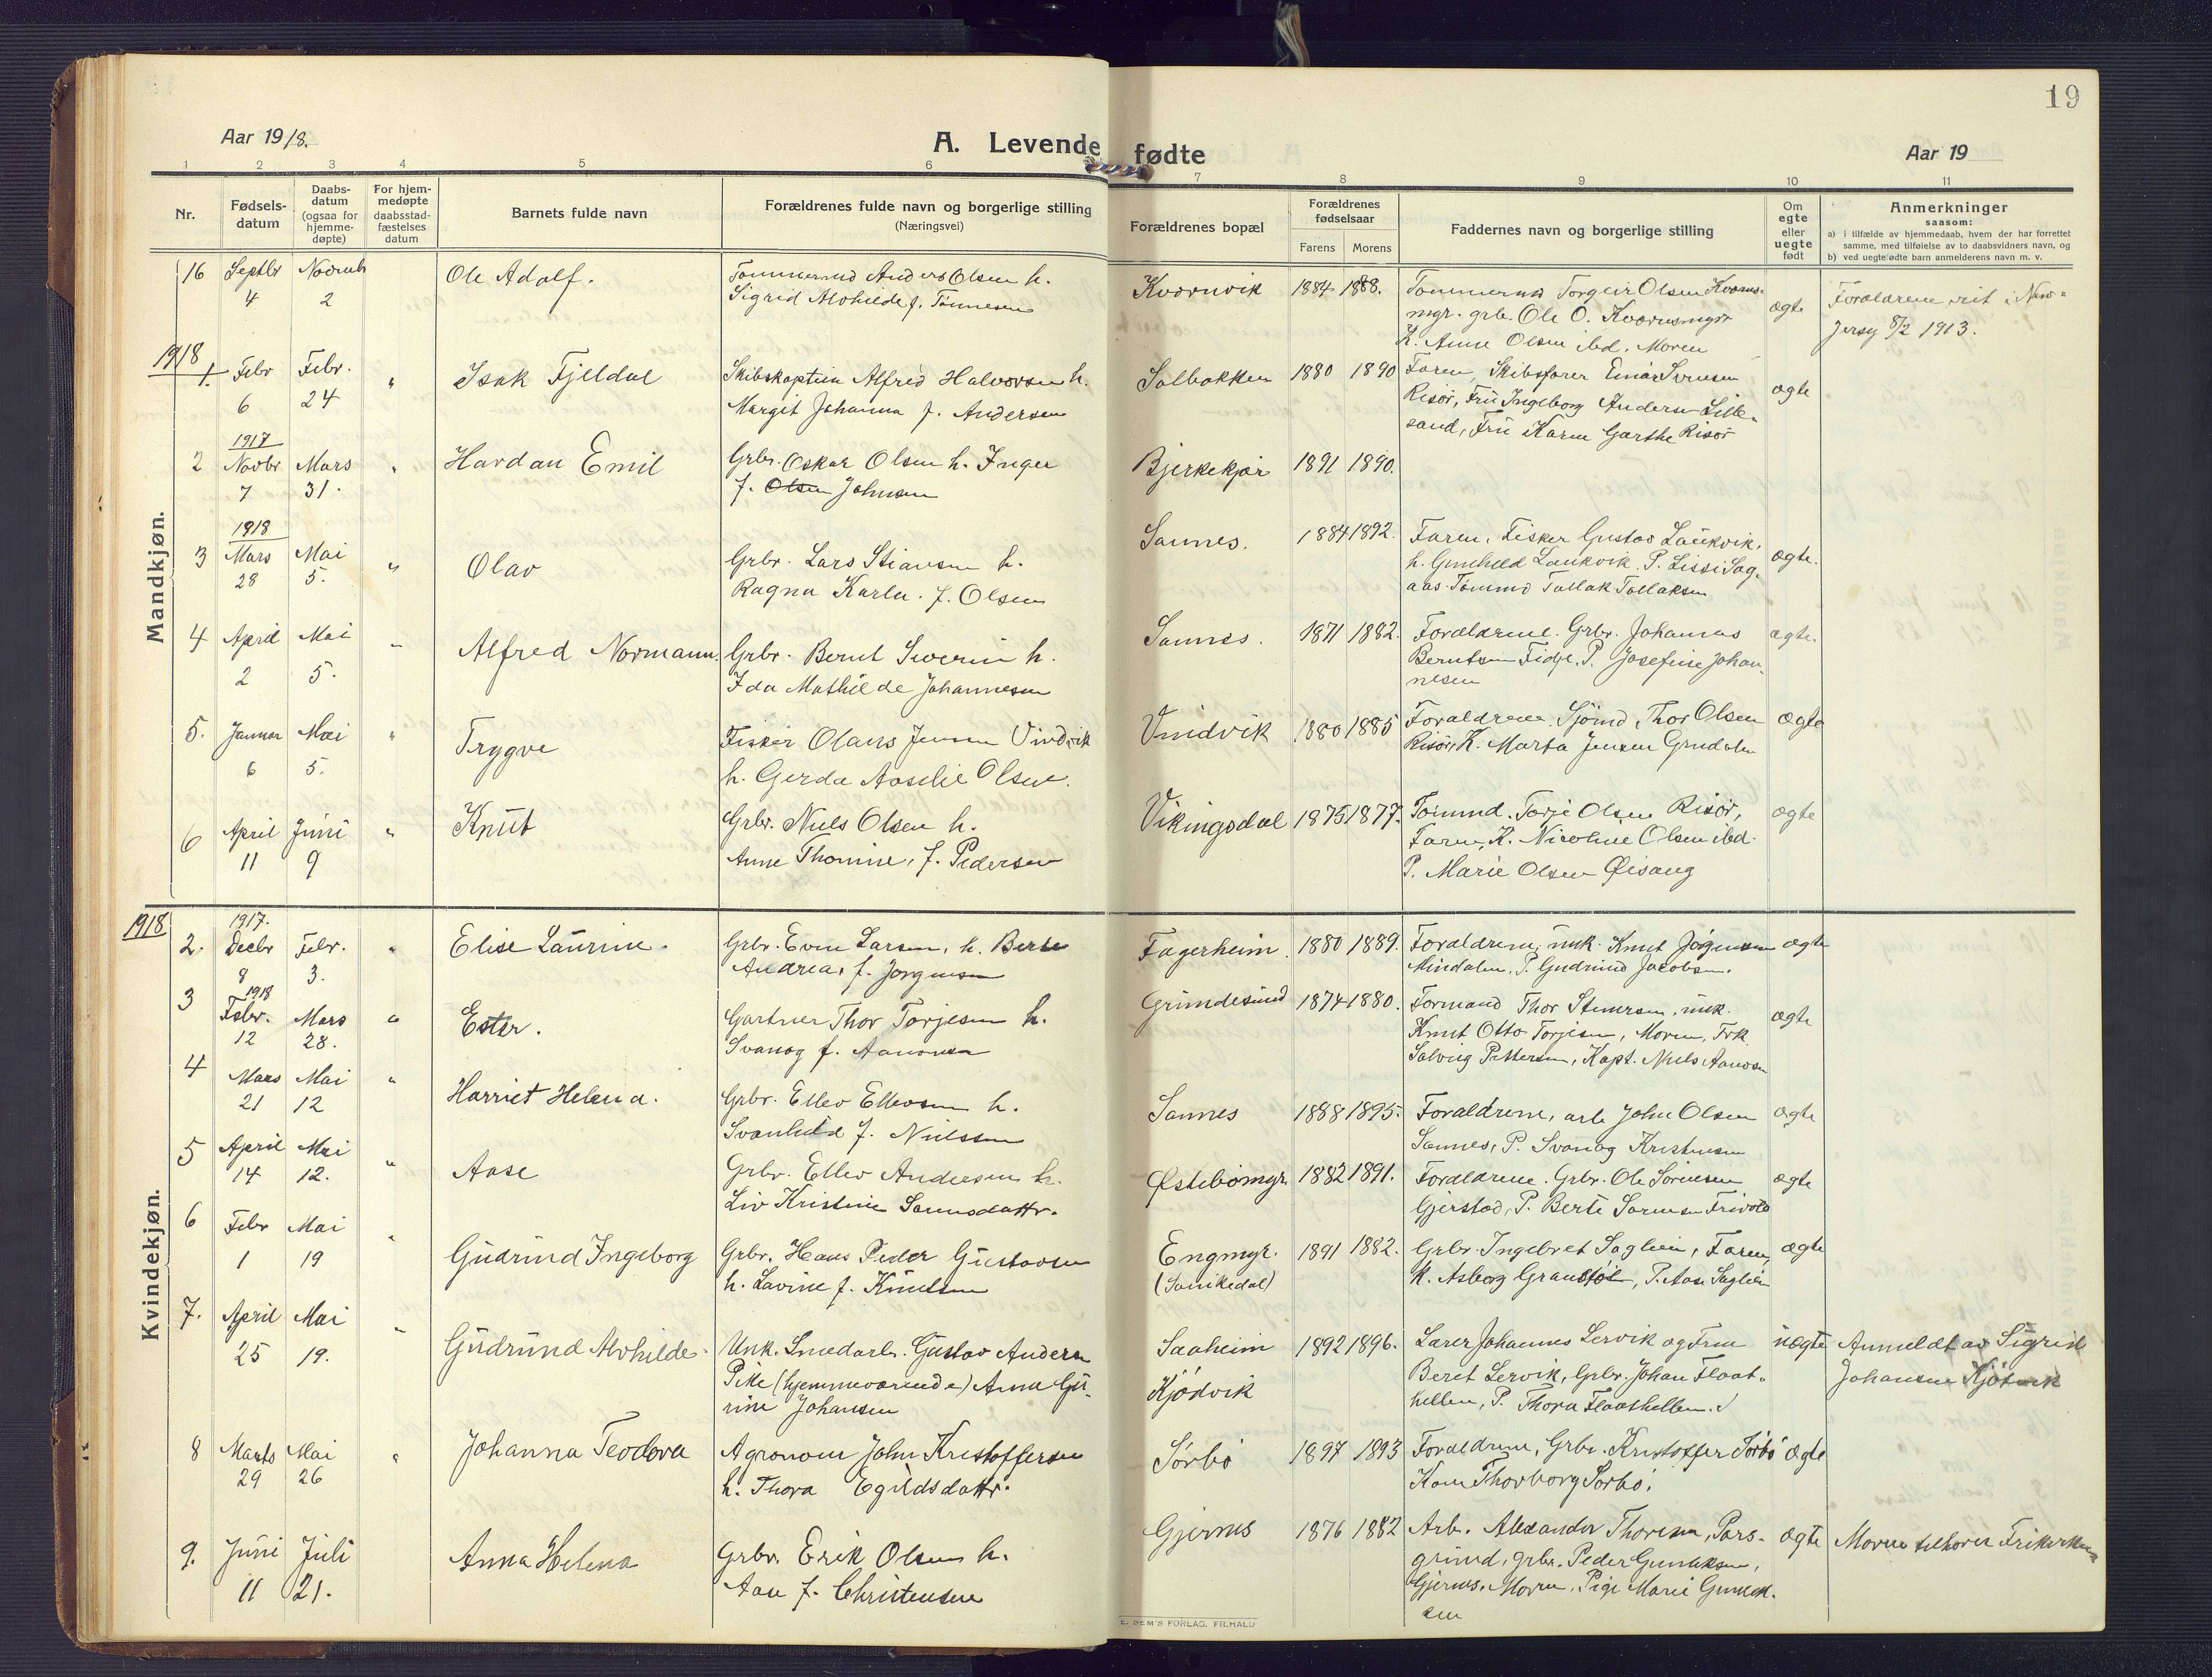 19
Aar 1918.
A. Levende fødte
Aar 19
1 2 3 4 5 6 7 8 9 10 11
Nr.
Fødsels-
datum
Daabs-
datum
(ogsaa for
hjemme-
døpte)
For hjem-
medøpte
daabsstad-
fæstelses
datum
Barnets fulde navn
Forældrenes fulde navn og borgerlige stilling
(Næringsvei)
Forældrenes bopæl
Forældrenes
fødselsaar
Farens Morens
Faddernes navn og borgerlige stilling
Om
egte
eller
uegte
født
Anmerkninger
saasom:
a) i tilfælde av hjemmedaab, hvem der har forrettet
samme, med tilføielse av to daabsvidners navn, og
b) ved uegtefødte barn anmelderens navn m. v.
Mandkjøn.
16 Septbr Novemb Ole Adolf. Tømmermd Anders Olsen h. Kværnvik 1884 1888. Tømmermd Torgeir Olsen Kværns- ægte Forældrene viet i New-
4 2 Sigrid Alvhilde f. Tønnesen myr. grb. Ole O. Kværnsmyr Jersy 8/2 1913.
K. Anne Olsen ibd. Moren
1918
1. Febr Febr. " Isak Fjeldal Skibskaptein Alfred Halvorsen h. Solbakken 1880 1890 Faren, Skibsfører Einar Svensen ægte
6 24 Margit Johanna f. Andersen Risör, Fru Ingeborg Andersen Lille-
sand, Fru Karen Garthe Risör
1917
2 Novbr Mars " Havdan Emil Grbr. Oskar Olsen h. Inger Bjerkekjær 1891 1890.
7 31. f. Olsen Johnsen
1918
3 Mars Mai " Olav Grbr. Lars Stiansen h. Sannes. 1884 1892. Faren, Fisker Gustav Laukvik,
28 5. Ragna Karla. f. Olsen h. Gunhild Laukvik. P. Lissi Sag- ægte.
aas. Tømmd Tallak Tallaksen
4 April Mai " Alfred Normann. Grbr. Bernt Severin h. Sannes. 1871 1882. Forældrene. Grbr. Johannes ægte.
2 5. Ida Mathilde Johannesen Berntsen Fidje, P. Josefine Johan-
nesen
5. Januar Mai " Trygve Fisker Olaus Jensen Vindvik Vindvik 1880 1885 Forældrene, Sjömd, Thor Olsen ægte
6 5. h. Gerda Aaselie Olsen. Risör, K. Marta Jensen
6 April Juni " Knut Grbr. Niels Olsen h. Vikingsdal 1875 1877. Tömmd. Torje Olsen Risör, ægte
11 9 Anne Thomine, f. Pedersen Faren, K. Nicoline Olsen ibd.
P. Marie Olsen Øisang
Kvindekjøn.
1918 1917.
2. Decbr Febr. " Elise Laurine. Grbr. Even Larsen, h. Berte Fagerheim. 1880 1889. Forældrene, unk. Knut Jörgensen ægte
8 3. Andrea, f. Jorgensen Mindalen. P. Gudrund Jacobsen.
1918
3 Febr. Mars " Ester. Gartner Thor Torjesen h. Grundesund 1874 1880. Formand Thor Stiansen, unk. ægte
12 28. Svanog f. Aanonsen Knut Otto Torjesen, Moren, Frk.
Solveig Pettersen, Kapt. Niels Aanonsen
4 Mars Mai " Harriet Helena. Grbr. Ellev Ellevsen h. Sannes 1888 1895. Forældrene, arb John Olsen ægte
21 12 Svanhild f. Nielssen Sannes, P. Svanog Kristensen
5 April Mai " Aase Grbr. Ellev Andersen h. Østebömyr. 1882 1891. Forældrene. Grbr. Ole Sörensen ægte
14 12. Liv Kristine Sannesdattr. Gjerstad, P. Berte Sørensen Frivold
6 Febr Mai " Gudrund Ingeborg Grbr. Hans Peder Gustavsen Engmyr. 1891 1882. Grbr. Ingebret Saglien, Faren, ægte
1 19 h. Lavine f. Knudsen (Sannikedal) K. Asborg Granstøl, P. Aase Saglien
7. April Mai " Gudrund Alvhilde. Unk. Smedarb. Gustav Andersen Saaheim 1892 1896. Lærer Johannes Lervik og Frue uægte Anmeldt av Sigrid
25 19. Pike (hjemmeværende) Anna Gu- Kjødvik Beret Lervik, Grbr. Johan Flaat- Johansen Kjötvik
rine Johansen hellen, P. Thora Flaathellen.
8 Marts Mai " Johanna Teodora Agronom John Kristoffersen Sørbö 1897 1893 Forældrene, Grbr. Kristoffer Sörbö ægte
29 26 h. Thora Egildsdattr. Kone Thorborg Sørbö.
9. Juni Juli Anna Helena Grbr. Erik Olsen h. Gjernes 1876 1882 Arb. Alexander Thoresen, Pors- ægte Moren tilhører Frikirken
11 21. Aase f. Christensen grund, grbr. Peder Gunaksen,
Gjernes. Moren, Pige Marie Gunak-
sen
E. SEM'S FORLAG. FR.HALD